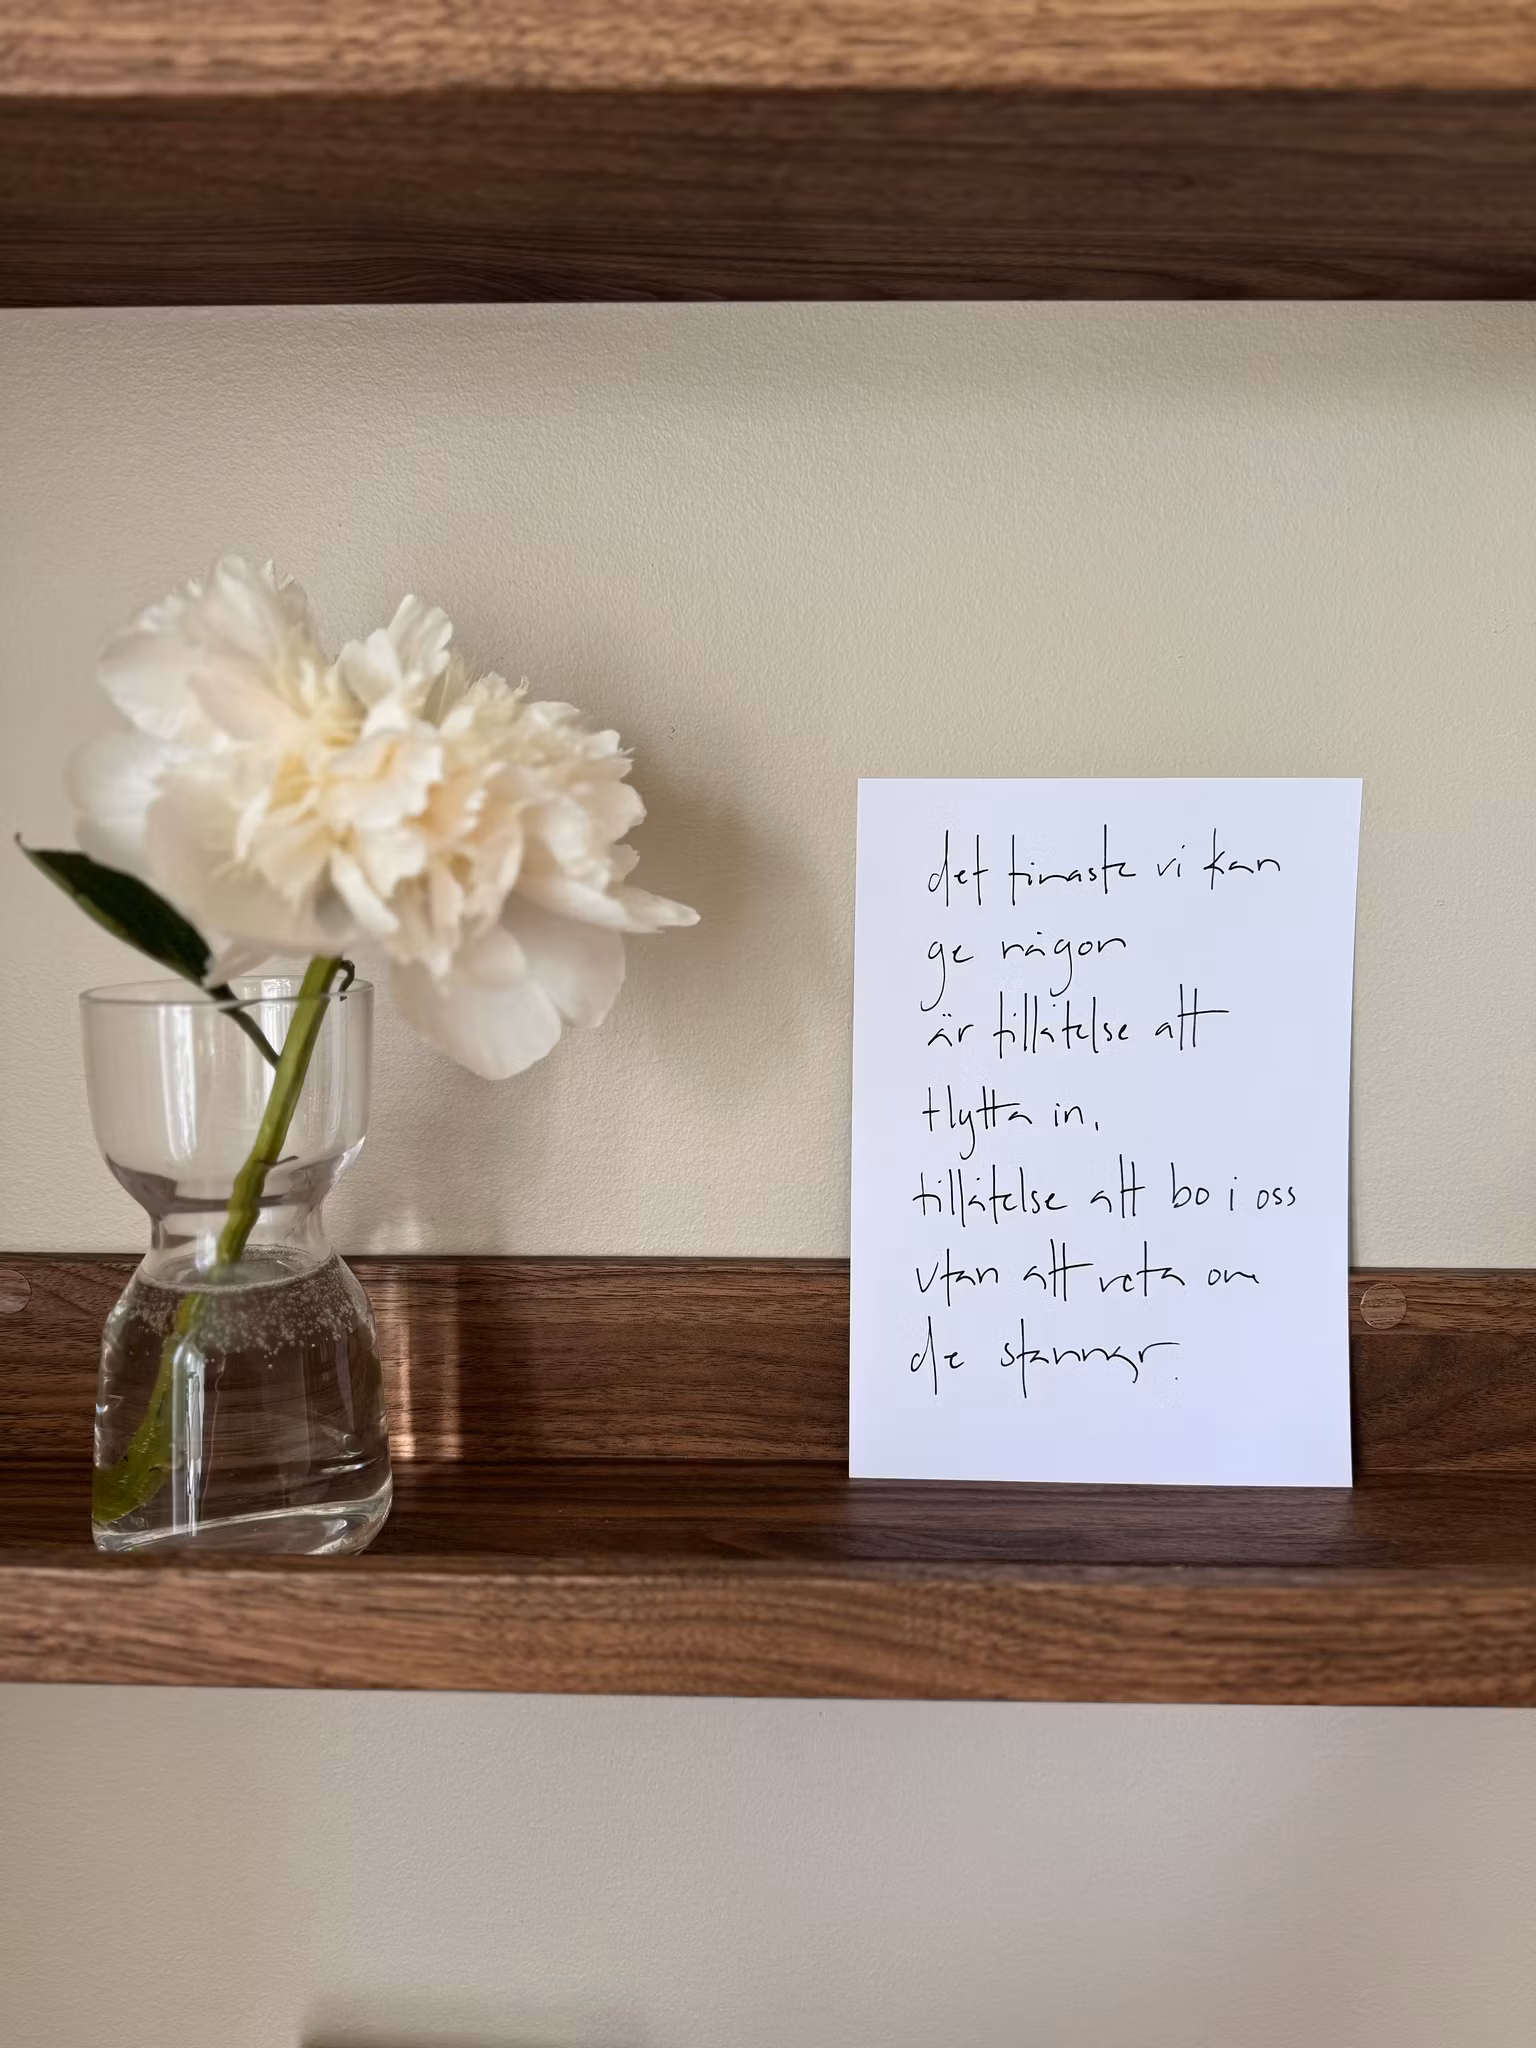 det finaste vi kan
ge någon
är tillåtelse att
flytta in,
tillåtelse att bo i oss
utan att veta om
de stannar.